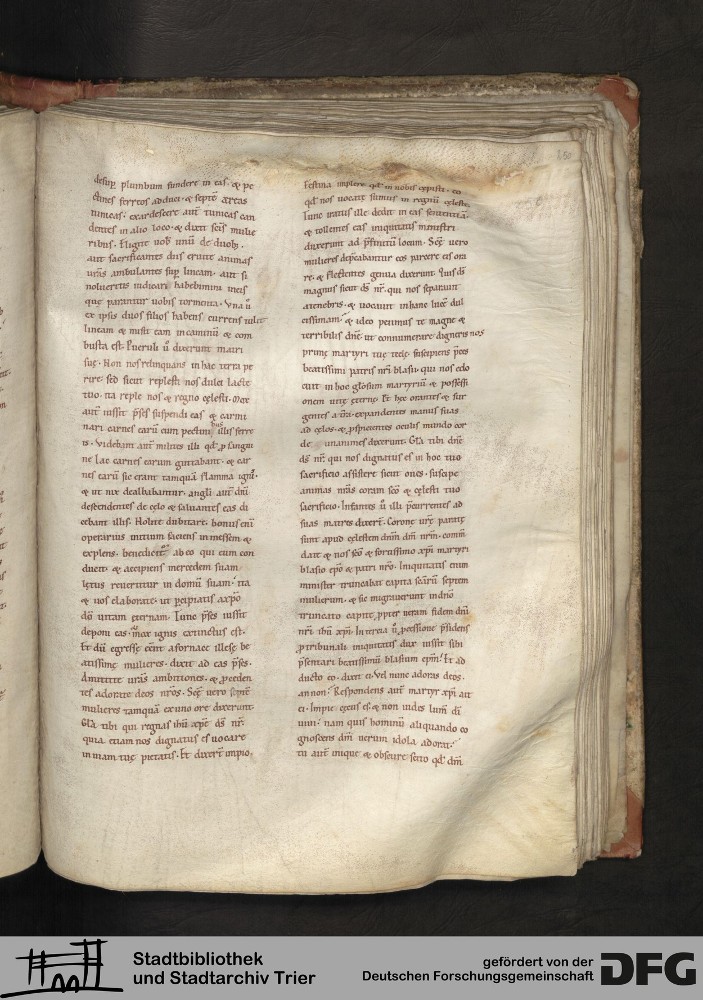 desup plumbum fundere in eas. & pe
ctines ferreos adduci. & septē ęreas
tunicas. exardescere aut̄ tunicas can
dentes in alio loco. & dixit scīs mulie
ribus. Eligite uob unū de duob.
aut sacrificantes diis eruite animas
ur̄as ambulantes sup lineam. aut si
nolueritis iudicari habebimini meis
quę parantur uobis tormenta. Vna ū
ex ipsis duos filios habens currens tulit
lineam & misit eam in caminū & com
busta est. Pueruli ū dixerunt matri
suę. Non nos relinquans in hac terra pe
rire. sed sicut replesti nos dulci lacte
tuo. ita reple nos & regno cęlesti. Mox
aut̄ iussit p̄ses suspendi eas & carmi
nari carnes earū cum pectinibus illis ferre
is. Videbant aut̄ milites illi qd̄ p sangui
ne lac carnes earum guttabant. & car
nes earū sic erant tamquā flamma igni.
& ut nix dealbabantur. angli aut̄ dn̄i
descendentes de cęlo & saluantes eas di
cebant illis. Nolite dubitare. bonus eni
operarius initium faciens in messem &
explens. benedicetur ab eo qui eum con
ducit. & accipiens mercedem suam
lętus reuertitur in domū suam. ita
& uos elaborate. ut pcipiatis a xpo
dō uitam ęternam. Tunc p̄ses iussit
deponi eas. mox ignis extinctus est.
Et dū egressę eēnt a fornace illesę be
atissimę mulieres. dixit ad eas p̄ses.
Dimittite ur̄as ambitiones. & pceden
tes adorate deos nr̄os. Scę uero septē
mulieres tamquā ex uno ore dixerunt.
Gl̄a tibi qui regnas ihū xp̄e ds̄ nr̄.
quia etiam nos dignatus es uocare
in uiam tuę pietatis. Et dixer̄t impio.
Festina implere qd̄ in nobis cepisti. eo
qd̄ nos uocate sumus in regnū cęleste.
Tunc iratus ille dedit in eas sententiā.
& tollentes eas iniquitatis ministri
duxerunt ad p̄finitū locum. Scę uero
mulieres depcabantur eos parcere eis ora
re. & flectentes genua dixerunt. Quis ds̄
magnus sicut ds̄ nr̄. qui nos separauit
a tenebris. & uocauit in hanc lucē dul
cissimam. & ideo petimus te magne &
terribilis dn̄e. ut connumerare digneris nos
primę martyri tuę teclę suscipiens p̄ces
beatissimi patris nr̄i blasii. qui nos edo
cuit in hoc gl̄osum martyriū. & possessi
onem uitę ęternę. Et hęc orantes & sur
gentes a tr̄a. expandentes manus suas
ad cęlos. & pspicientes oculis mundo cor
de unanimes dixerunt. Gl̄a tibi dn̄e
ds̄ nr̄. qui nos dignatus es in hoc tuo
sacrificio assistere sicut oues. suscipe
animas nr̄as coram scō & cęlesti tuo
sacrificio. Infantes ū illi p̄currentes ad
suas matres dixer̄t. Coronę ur̄ę paratę
sunt apud cęlestem dn̄m dm̄ nr̄m. comm̄
date & nos scō & fortissimo xp̄i martyri
blasio ep̄o & patri nr̄o. Iniquitatis enim
minister truncabat capita scārū septem
mulierum. & sic migrauerunt in dn̄o
truncato capite ppter ueram fidem dn̄i
nr̄i ihū xp̄i. In tercia ū pcessione p̄sidens
p tribunali iniquitatis dux iussit sibi
p̄sentari beatissimū blasium ep̄m. Et ad
ducto eo. dixit ei. Vel nunc adoras deos.
an non. Respondens aut̄ martyr xp̄i ait
ei. Impie. cęcus es & non uides lum̄ di
uini. nam quis hominū aliquando co
gnoscens dm̄ uerum idola adorat.
tu aut̄ inique & obscure scito qd̄ dm̄
Stadtbibliothek
und Stadtarchiv Trier
gefördert von der
Deutschen Forschungsgemeinschaft
DFG